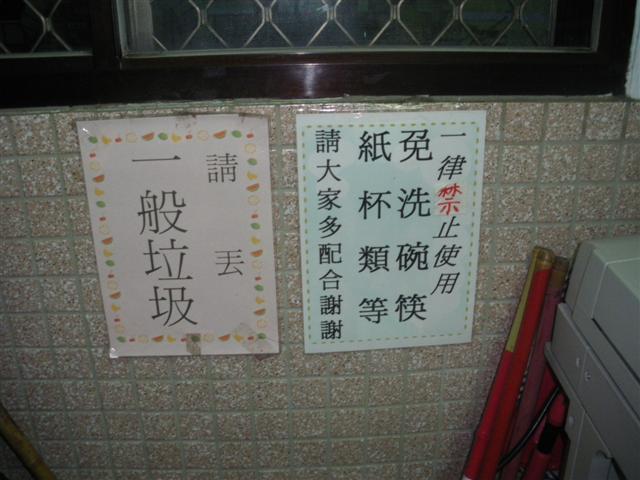 請丟
一般垃圾
一律禁止使用
免洗碗筷
紙杯類等
請大家多配合謝謝